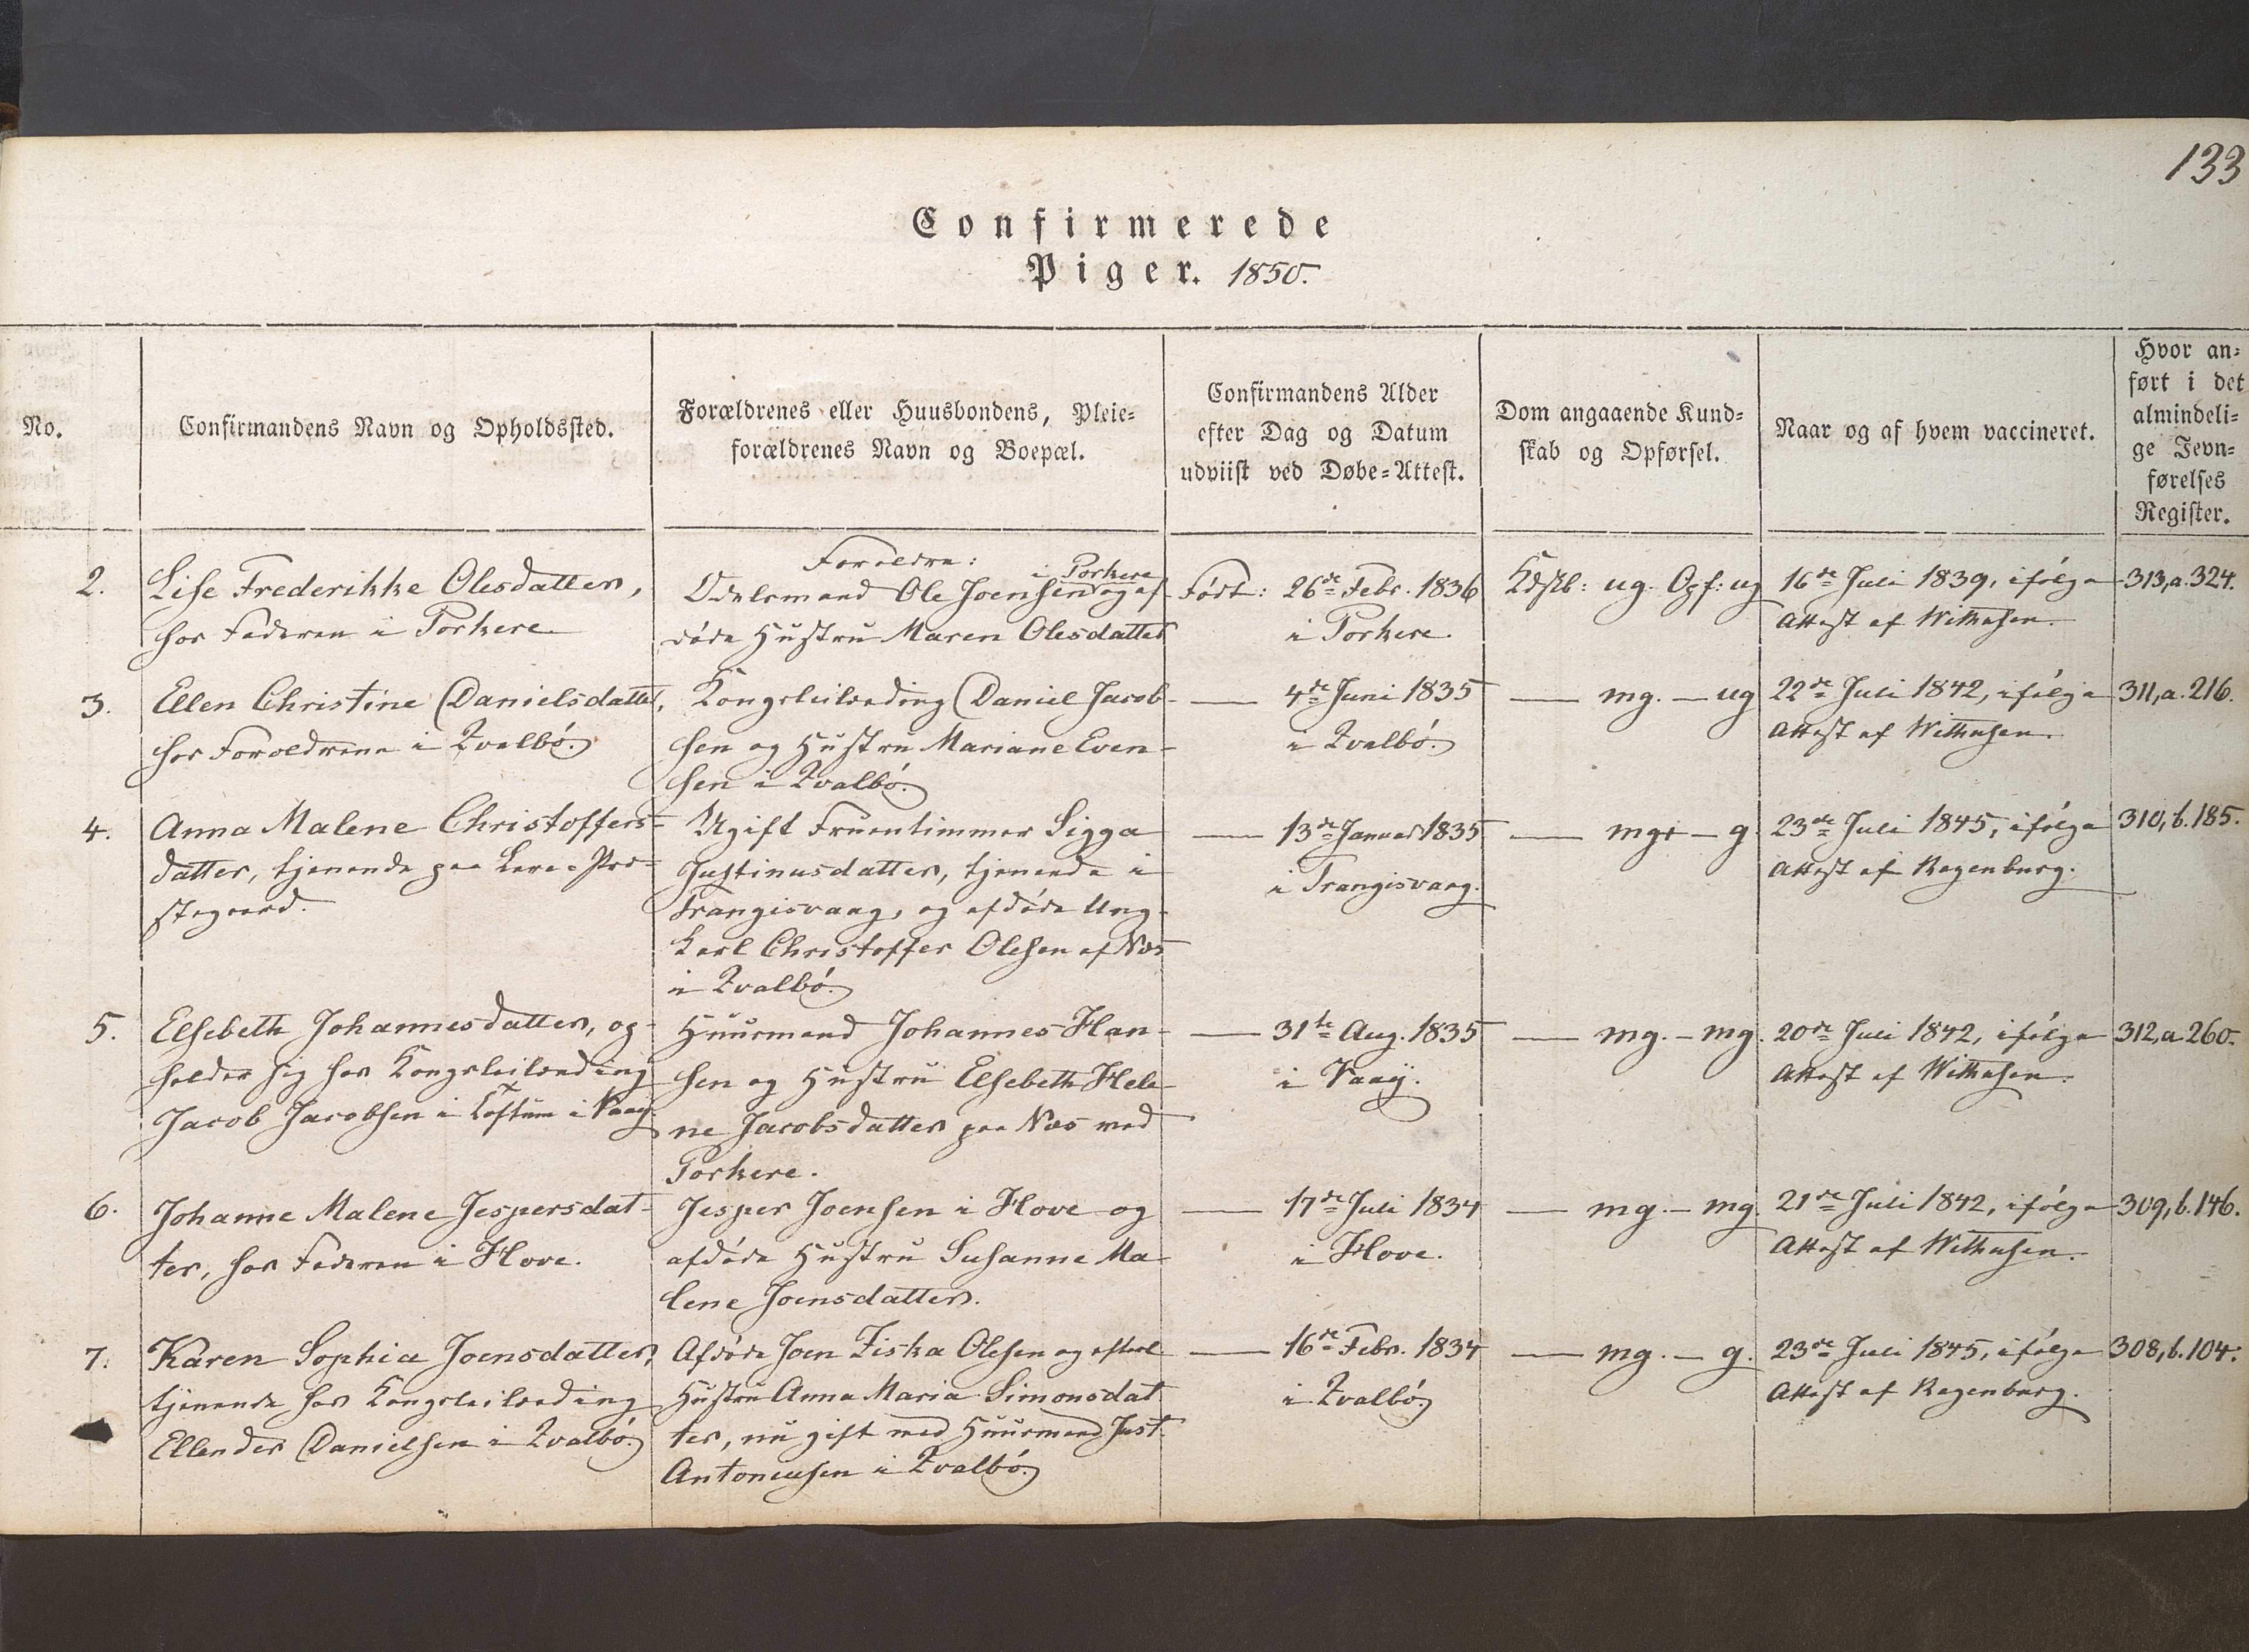 133
Confirmerede
Piger. 1850.
No.
Confirmandens Navn og Opholdssted.
Forældrenes eller Huusbondens, Pleie-
forældrenes Navn og Boepæl.
Confirmandens Alder
efter Dag og Datum
udviist ved Døbe-Attest.
Dom angaaende Kund-
skab og Opførsel.
Naar og af hvem vaccineret.
Hvor an-
ført i det
almindeli-
ge Jevn-
førelses
Register.
2.
Lise Frederikke Olesdatter,
hos Faderen i Porkere
Forældre:
i Porkere
Odelsmand Ole Joensen og af-
døde Hustru Maren Olesdatter
Født: 26de Febr. 1836
i Porkere.
Kdskb: ug. Opf: ug
16de Juli 1839, ifølge
Attest af Withusen.
313, a. 324.
3.
Ellen Christine Danielsdatter,
hos Forældrene i Qvalbø.
Kongsleilænding Daniel Jacob-
sen og Hustru Mariane Even-
sen i Qvalbø.
— 4de Juni 1835
i Qvalbø.
— mg. — ug
22de Juli 1842, ifølge
Attest af Withusen.
311, a. 216.
4.
Anna Malene Christoffers-
datter, tjenende paa Præ-
stegaard.
Ugift Fruentimmer Sigga
Justinusdatter, tjenende i
Trangisvaag, og afdøde Ung-
karl Christoffer Olesen af Næs
i Qvalbø.
— 13de Januar 1835
i Trangisvaag.
— mg+ — g.
23de Juli 1845, ifølge
Attest af Regenburg.
310, b. 185.
5.
Elsebeth Johannesdatter, op-
holder sig hos Kongsleilænding
Jacob Jacobsen i Toftum i Vaag.
Huusmand Johannes Han-
sen og Hustru Elsebeth Hele-
ne Jacobsdatter paa Næs ved
Porkere.
— 31te Aug. 1835
i Vaag.
— mg. — mg.
20de Juli 1842, ifølge
Attest af Withusen.
312, a. 260.
6.
Johanne Malene Jespersdat-
ter, hos Faderen i Hove.
Jesper Joensen i Hove og
afdøde Hustru Susanne Ma-
lene Joensdatter.
— 17de Juli 1834
i Hove.
— mg. — mg.
21de Juli 1842, ifølge
Attest af Withusen.
309, b. 146.
7.
Karen Sophia Joensdatter,
tjenende hos Kongsleilænding
Ellender Danielsen i Qvalbø.
Afdøde Joen Ziska Olesen og efterl.
Hustru Anna Maria Simonsdat
ter, nu gift med Huusmand Just
Antoniusen i Qvalbø.
— 16de Febr. 1834
i Qvalbø.
— mg. — g.
23de Juli 1845, ifølge
Attest af Regenburg.
308, b. 104.